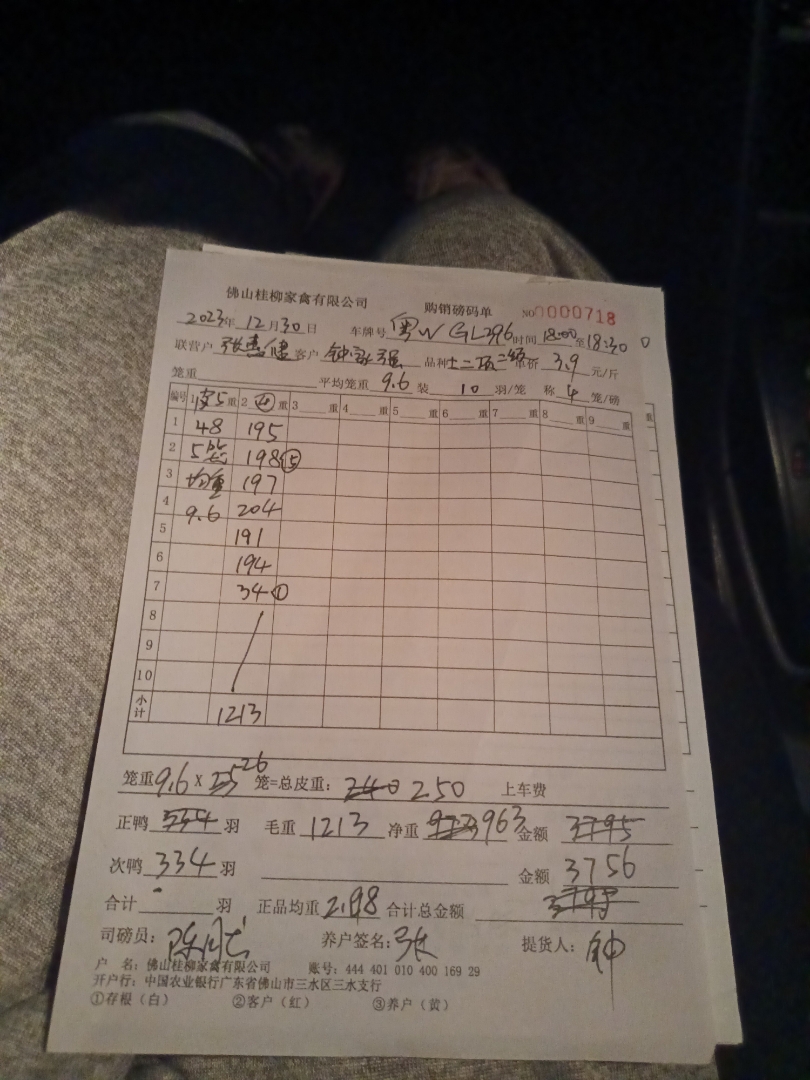 佛山桂柳家禽有限公司 购销磅码单 NO 0000718
2023年 12月30日 车牌号 粤W GL396 时间 18:00至18:30
联营户 张 客户 钟 强 品种 单价 3.9 元/斤
笼重 平均笼重 9.6 装 10 羽/笼 称 4 笼/磅
编号 1 皮5 重 2 ④ 重 3 重 4 重 5 重 6 重 7 重 8 重 9 重 重
1 48 195
2 5 198⑤
3 均重 197
4 9.6 204
5 191
6 194
7 34①
8
9
10
小计 1213
笼重9.6 X 25 26 笼=总皮重: 240 250 上车费
正鸭 334 羽 毛重 1213 净重 973 963 金额 3795
次鸭 334 羽 金额 3756
合计 羽 正品均重 2.98 合计总金额 3795
司磅员: 陈 养户签名: 张 提货人: 钟
户 名: 佛山桂柳家禽有限公司 账号: 444 401 010 400 169 29
开户行: 中国农业银行广东省佛山市三水区三水支行
①存根(白) ②客户(红) ③养户(黄)